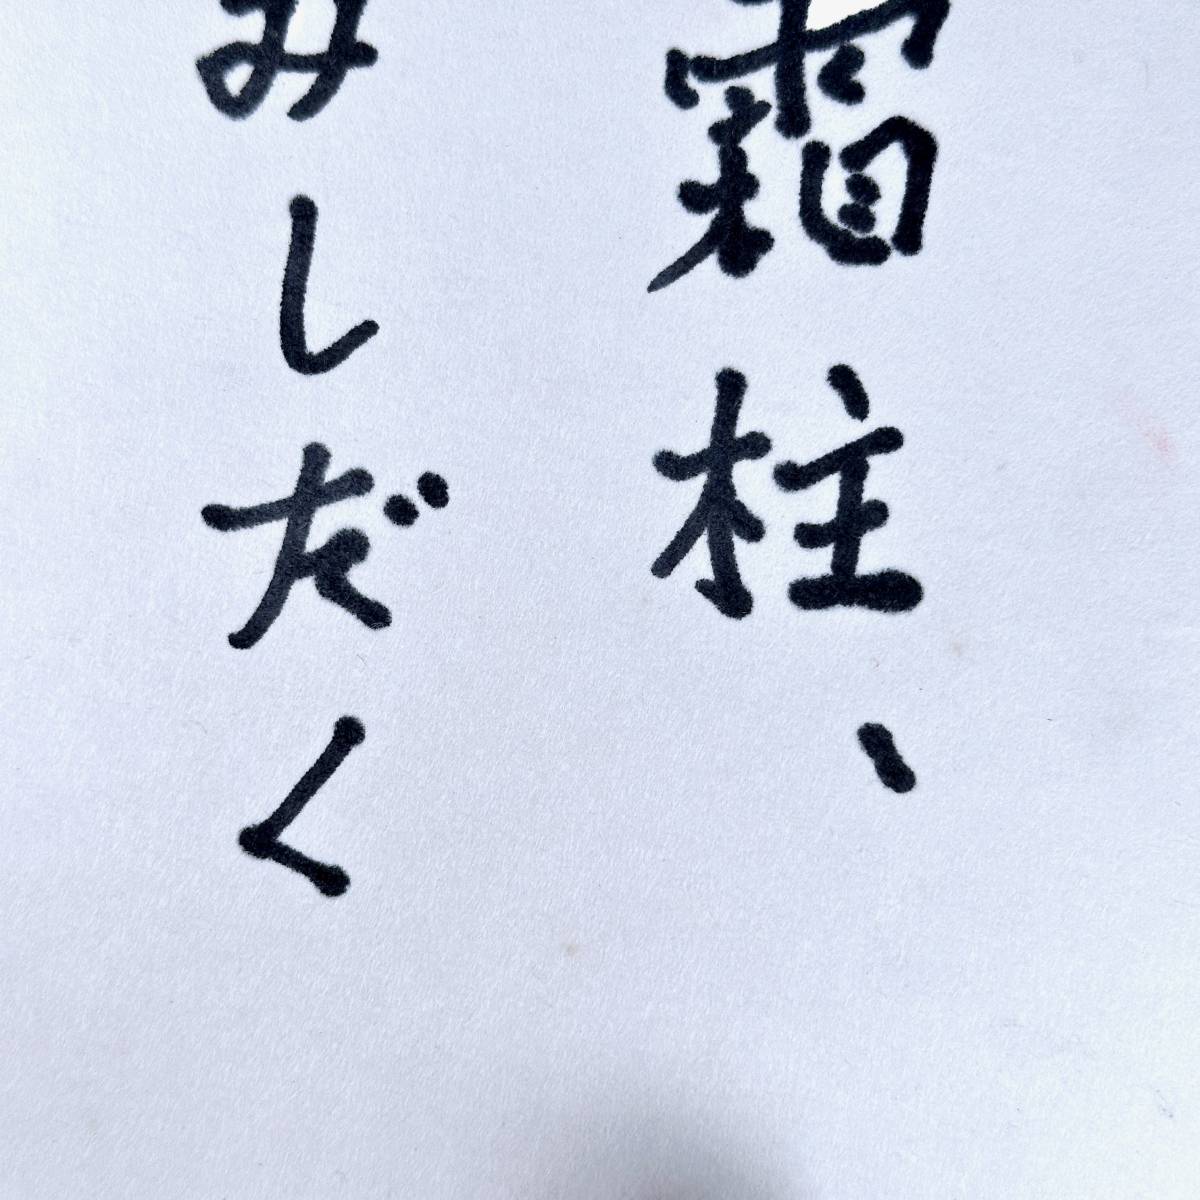 霜柱、
みしだく